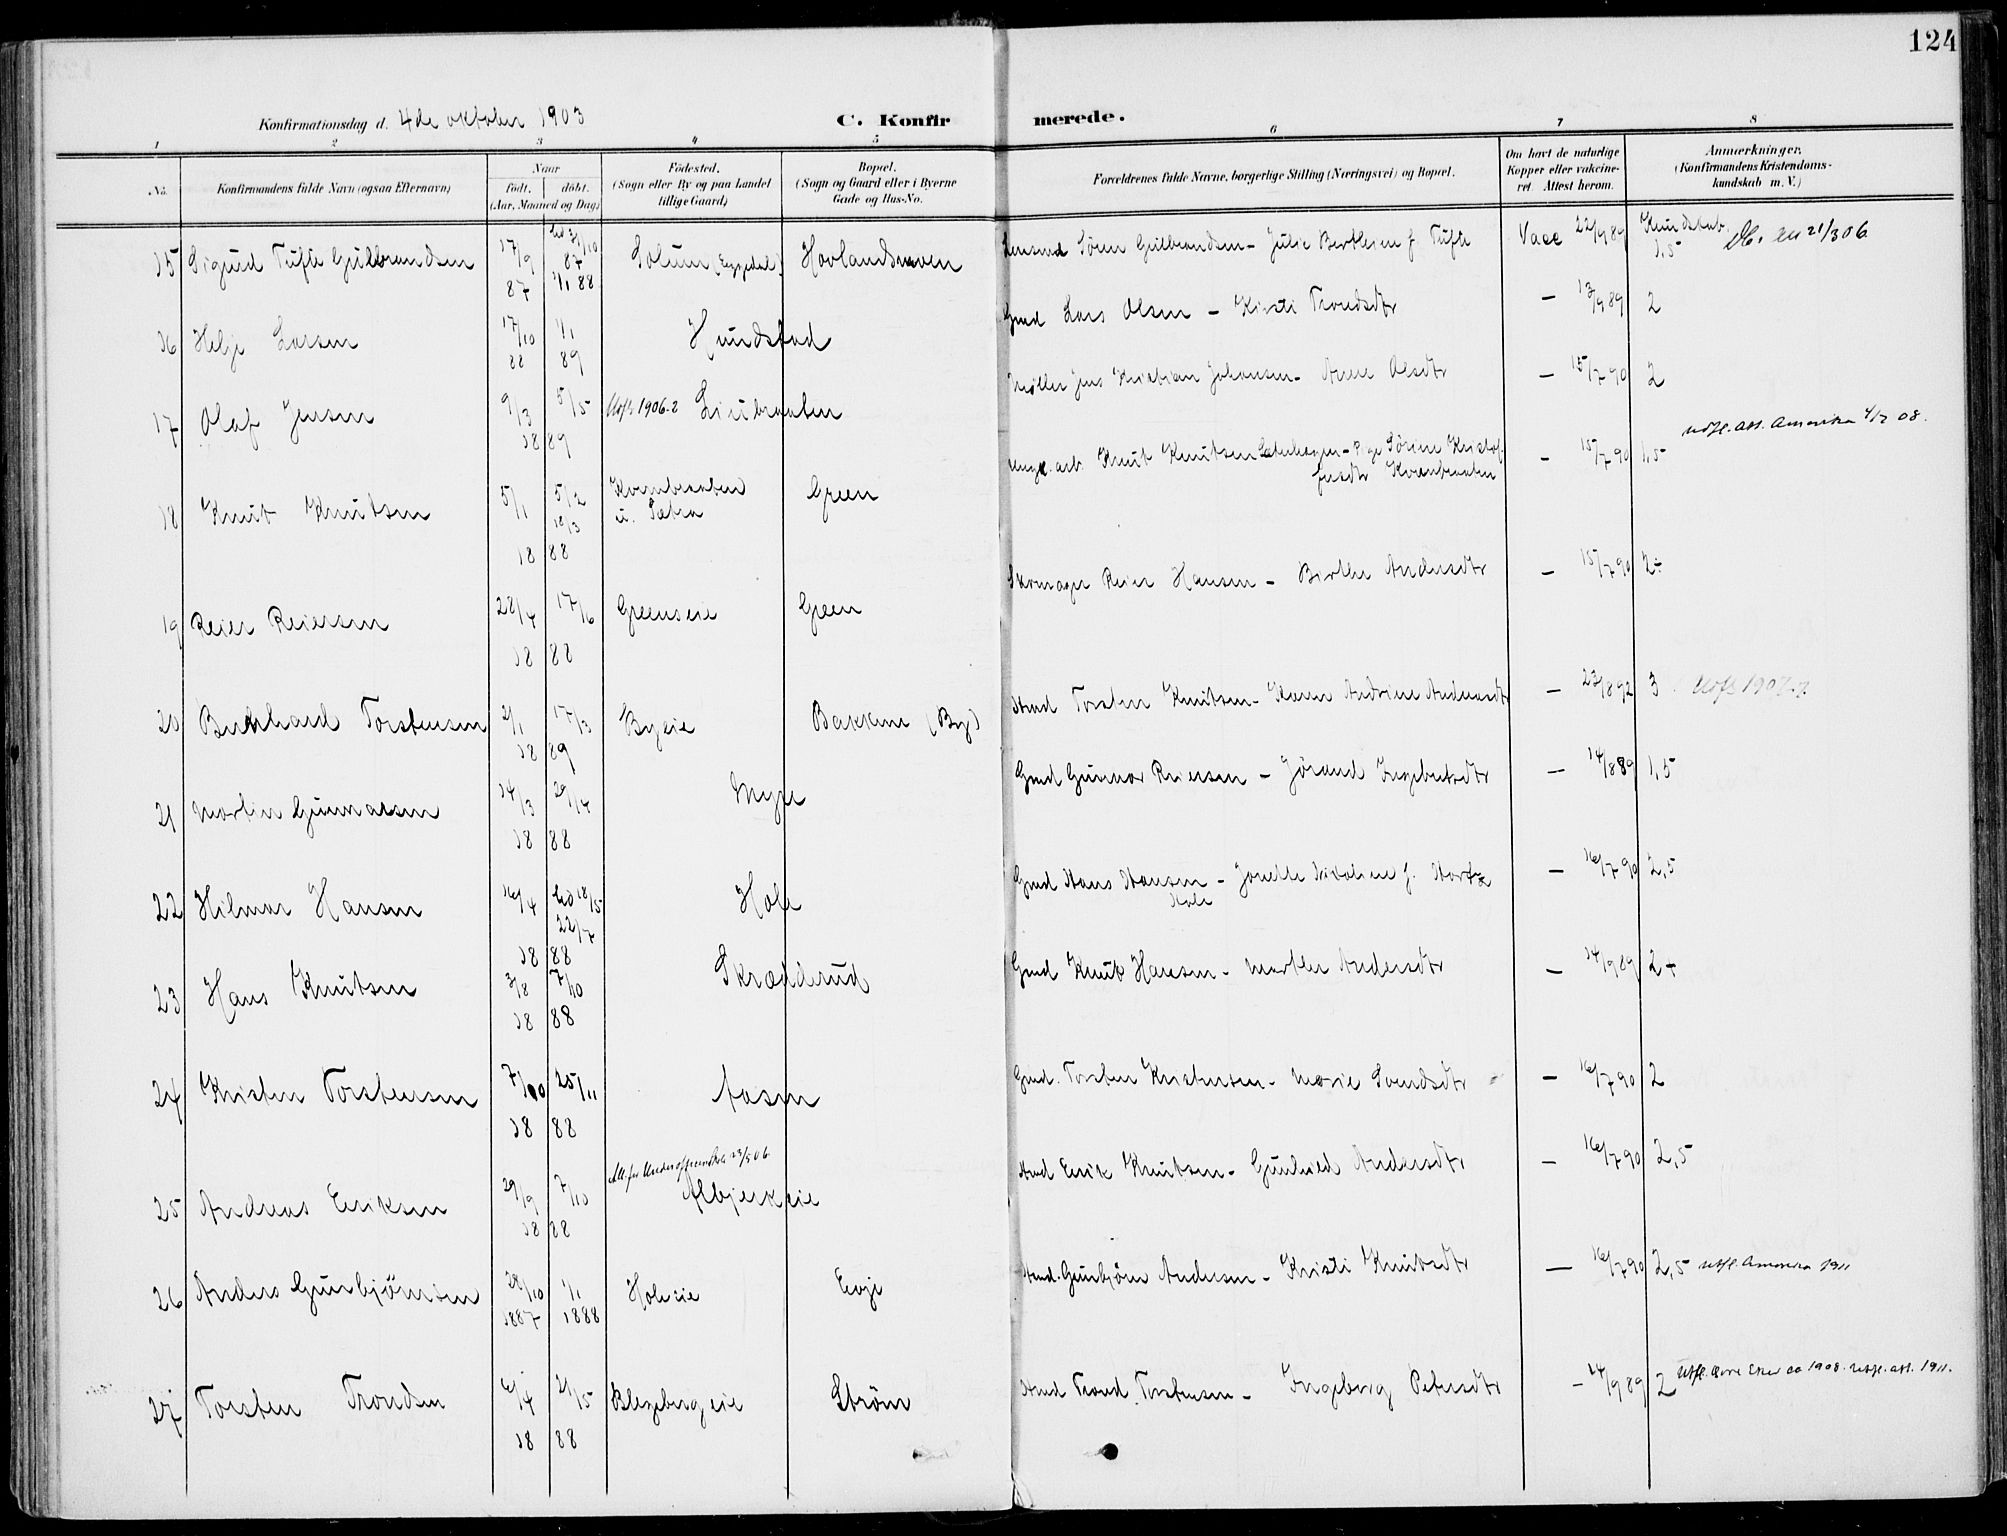 124
Konfirmationsdag d. 4de oktober 1903
C. Konfirmerede.
1 2 3 4 5 6 7 8
No.
Konfirmandens fulde Navn (ogsaa Efternavn)
Naar
født. døbt.
(Aar, Maaned og Dag)
Fødested.
(Sogn eller By og paa Landet
tillige Gaard)
Bopæl.
(Sogn og Gaard eller i Byerne
Gade og Hus-No.
Forældrenes fulde Navne, borgerlige Stilling (Næringsvei) og Bopæl.
Om havt de naturlige
Kopper eller vakcine-
ret. Attest herom.
Anmærkninger.
(Konfirmandens Kristendoms-
kundskab m. V.)
15 Sigurd Tufte Gulbrandsen 17/9 87 hd 31/10 87 1/1 88 Solum (Eggedal) Hovlandsmoen Lensmd Sören Gulbrandsen - Julie Berthesen f. Tufte Vacc 22/9 89 Kundskab 1,5 21/3 06
16 Helge Larsen 17/10 88 1/1 89 Hundstad Gmd Lars Olsen - Kirsti Trondsdtr - 13/9 89 2
17 Olaf Jensen 9/3 5/5 1889 Uofs 1906-2 Liubraaten Møller Jens Kristian Johansen - Anne Olsdtr - 15/7 90 2
18 Knut Knutsen 5/1 5/2 18/3 1888 Kvernbraaten u. Sætra Green Ungk. arb. Knut Knutsen - Pige Sörine Kristof-
fersdtr Kvernbraaten - 15/7 90 1,5 utfl. att. Amerika 4/2 08.
19 Reier Reiersen 28/4 17/6 1888 Greenseie Green Skomager Reier Hansen - Berthe Andersdtr - 15/7 90 2÷
20 Bernhard Torstensen 2/1 17/3 1889 Byeie Bakken (By) Hmd Torsten Knutsen - Karen Andrine Andersdtr - 23/8 92 3 Uofs 1907-2
21 Martin Gunnarsen 14/3 29/4 1888 Myre Gmd Gunnar Reiersen - Jörand Ingebretsdtr - 14/8 89 1,5
22 Hilmar Hansen 16/4 hd 18/5 22/7 1888 Hole Gmd Hans Hansen Hole - Josette Nikoline f. - 16/7 90 2,5
23 Hans Knutsen 3/8 7/10 1888 Skrædderud Gmd Knut Hansen - Marthe Andersdtr - 14/9 89 2÷
24 Kristen Torstensen 7/10 25/11 1888 Aasen Gmd. Torsten Kristensen - Marie Svendsdtr - 16/7 90 2
25 Andreas Eriksen 29/9 7/10 1888 Att. for Underoff 23/5 06 Albjerkeie Hmd Erik Knutsen - Gunhild Andersdtr - 16/7 90 2,5
26 Anders Gunbjörnsen 28/10 1887 1/1 1888 Holeeie Evje Hmd. Gunbjörn Andersen - Kristi Knutsdtr - 16/7 90 2,5 utfl. Amerika 1911
27 Torsten Trondsen 6/4 21/5 1888 Blegebergeie Ström Hmd Trond Torstensen - Ingeborg Petersdtr - 24/9 89 2 utfl. Övre Eker ca 1908. utfl. att. 1911.